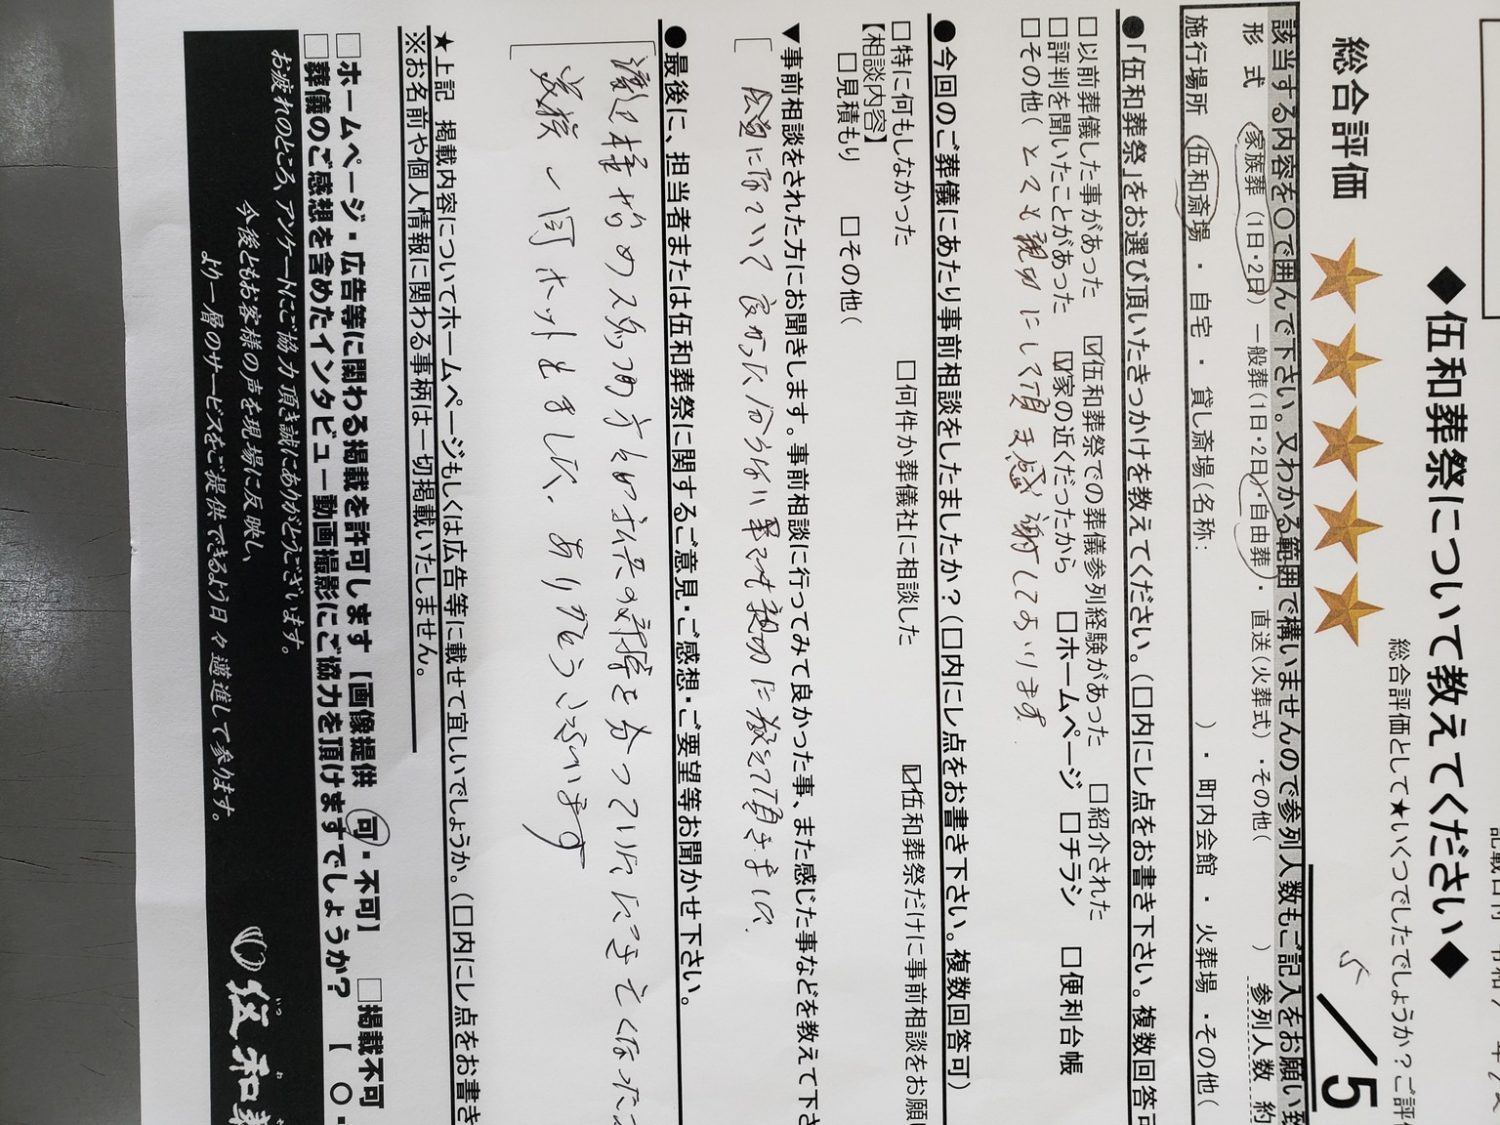 ◆伍和葬祭について教えてください◆
総合評価
総合評価として★いくつでしたでしょうか？ご評
5 ／5
該当する内容を〇で囲んで下さい。又わかる範囲で構いませんので参列人数もご記入をお願い致
形 式 家族葬（1日・2日） 一般葬（1日・2日）・自由葬・直送（火葬式）・その他（ ） 参列人数 約
施行場所 伍和斎場 ・ 自宅 ・ 貸し斎場（名称： ）・ 町内会館 ・ 火葬場 ・その他（
●「伍和葬祭」をお選び頂いたきっかけを教えてください。（□内にレ点をお書き下さい。複数回答可
□以前葬儀した事があった ☑伍和葬祭での葬儀参列経験があった □紹介された
□評判を聞いたことがあった ☑家の近くだったから □ホームページ □チラシ □便利台帳
□その他（とても親切にして頂き感謝しております
●今回のご葬儀にあたり事前相談をしたましたか？（□内にレ点をお書き下さい。複数回答可）
□特に何もしなかった □何件か葬儀社に相談した ☑伍和葬祭だけに事前相談をお願い
【相談内容】
□見積もり □その他（
▼事前相談をされた方にお聞きします。事前相談に行ってみて良かった事、また感じた事などを教えて下さ
会員になっていて良かった 分らない事でも親切に教えて頂きました
●最後に、担当者または伍和葬祭に関するご意見・ご感想・ご要望等お聞かせ下さい。
様始めスタッフの方々
一同ホットしました、ありがとうございます
★上記 掲載内容についてホームページもしくは広告等に載せて宜しいでしょうか。（□内にレ点をお書き
※お名前や個人情報に関わる事柄は一切掲載いたしません。
□ホームページ・広告等に関わる掲載を許可します【画像提供 可・不可】 □掲載不可
□葬儀のご感想を含めたインタビュー動画撮影にご協力を頂けますでしょうか？ 【 〇・
お疲れのところ、アンケートにご協力頂き誠にありがとうございます。
今後ともお客様の声を現場に反映し、
より一層のサービスをご提供できるよう日々邁進して参ります。
いつ わ
伍和葬